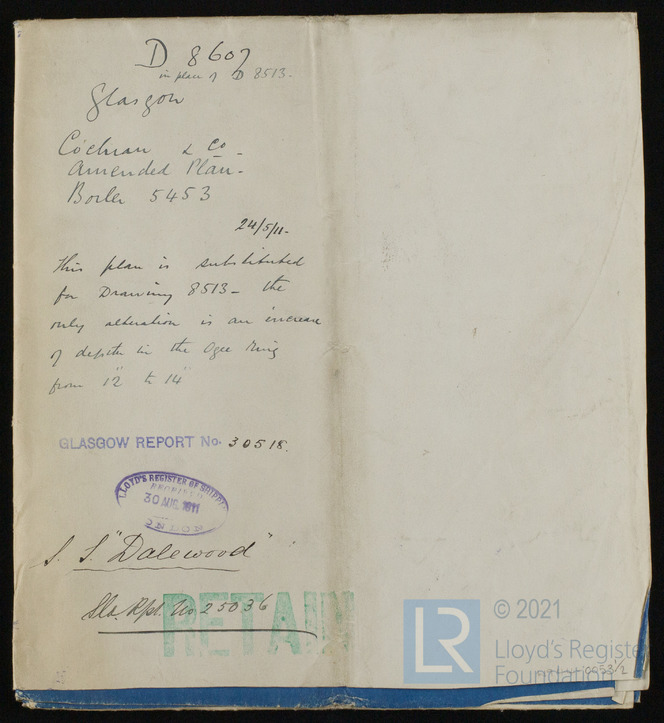 D 8607
in place of D 8513.
Glasgow
Cochran & Co
Amended Plan.
Boiler 5453
24/5/11.
This plan is substituted
for Drawing 8513 - the
only alteration is an increase
of depth in the Ogee Ring
from 12" to 14"
GLASGOW REPORT No. 30518.
LLOYD'S REGISTER OF SHIPPING
RECEIVED
30 AUG. 1911
LONDON
S. S. "Dalewood"
Gla. Rpt. No. 25036
RETAIN
LR
© 2021
Lloyd's Register
Foundation
0053/2